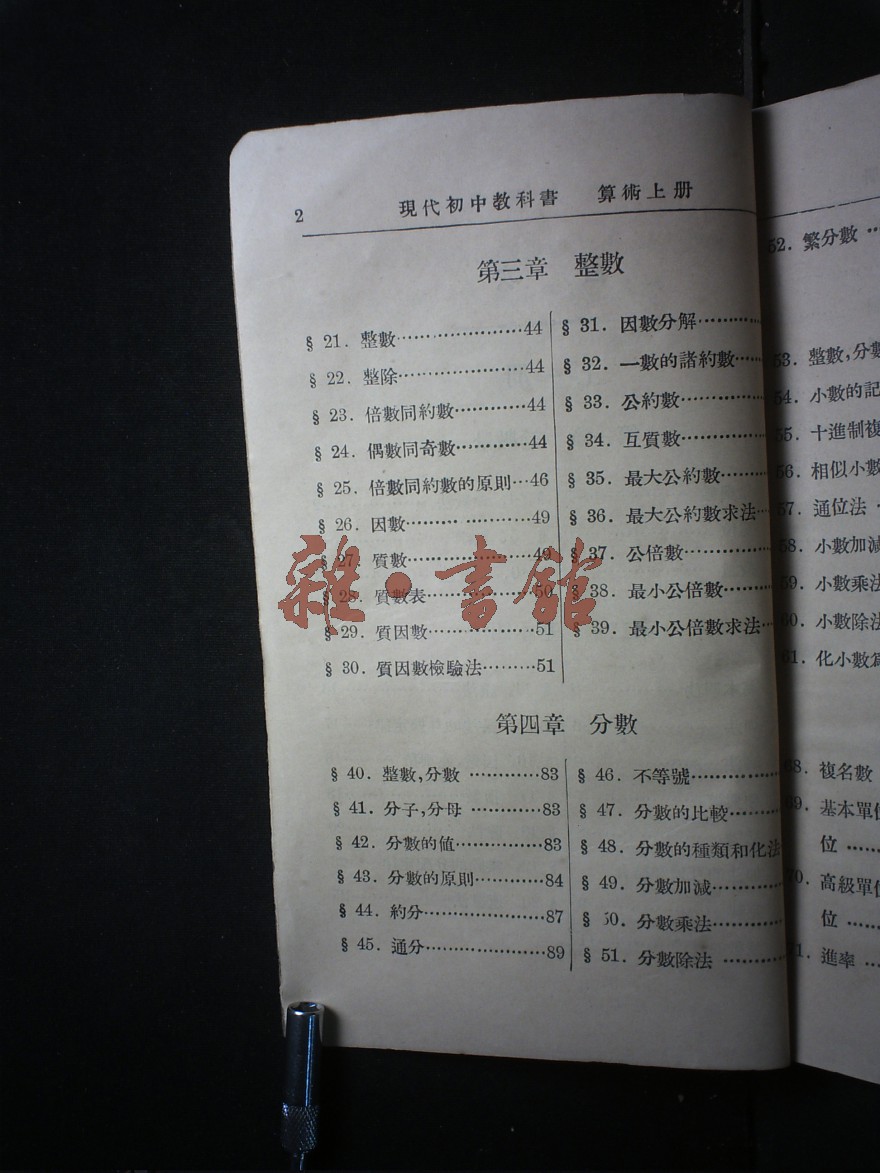 2 現代初中教科書 算術上册
第三章 整數
§ 21. 整數……………………44
§ 22. 整除……………………44
§ 23. 倍數同約數…………44
§ 24. 偶數同奇數…………44
§ 25. 倍數同約數的原則…46
§ 26. 因數……… …………49
§ 27. 質數…………………49
§ 28. 質數表………………50
§ 29. 質因數………………51
§ 30. 質因數檢驗法………51
§ 31. 因數分解…………
§ 32. 一數的諸約數……
§ 33. 公約數……………
§ 34. 互質數……………
§ 35. 最大公約數………
§ 36. 最大公約數求法…
§ 37. 公倍數……………
§ 38. 最小公倍數………
§ 39. 最小公倍數求法…
第四章 分數
§ 40. 整數,分數 …………83
§ 41. 分子,分母 …………83
§ 42. 分數的值……………83
§ 43. 分數的原則…………84
§ 44. 約分…………………87
§ 45. 通分…………………89
§ 46. 不等號……………
§ 47. 分數的比較………
§ 48. 分數的種類和化法
§ 49. 分數加減…………
§ 50. 分數乘法…………
§ 51. 分數除法 ………
52. 繁分數 …
53. 整數,分數
54. 小數的記
55. 十進制複
56. 相似小數
57. 通位法
58. 小數加減
59. 小數乘法
60. 小數除法
61. 化小數爲
68. 複名數
69. 基本單位
位 ……
70. 高級單位
位 ……
71. 進率 …
雜·書館